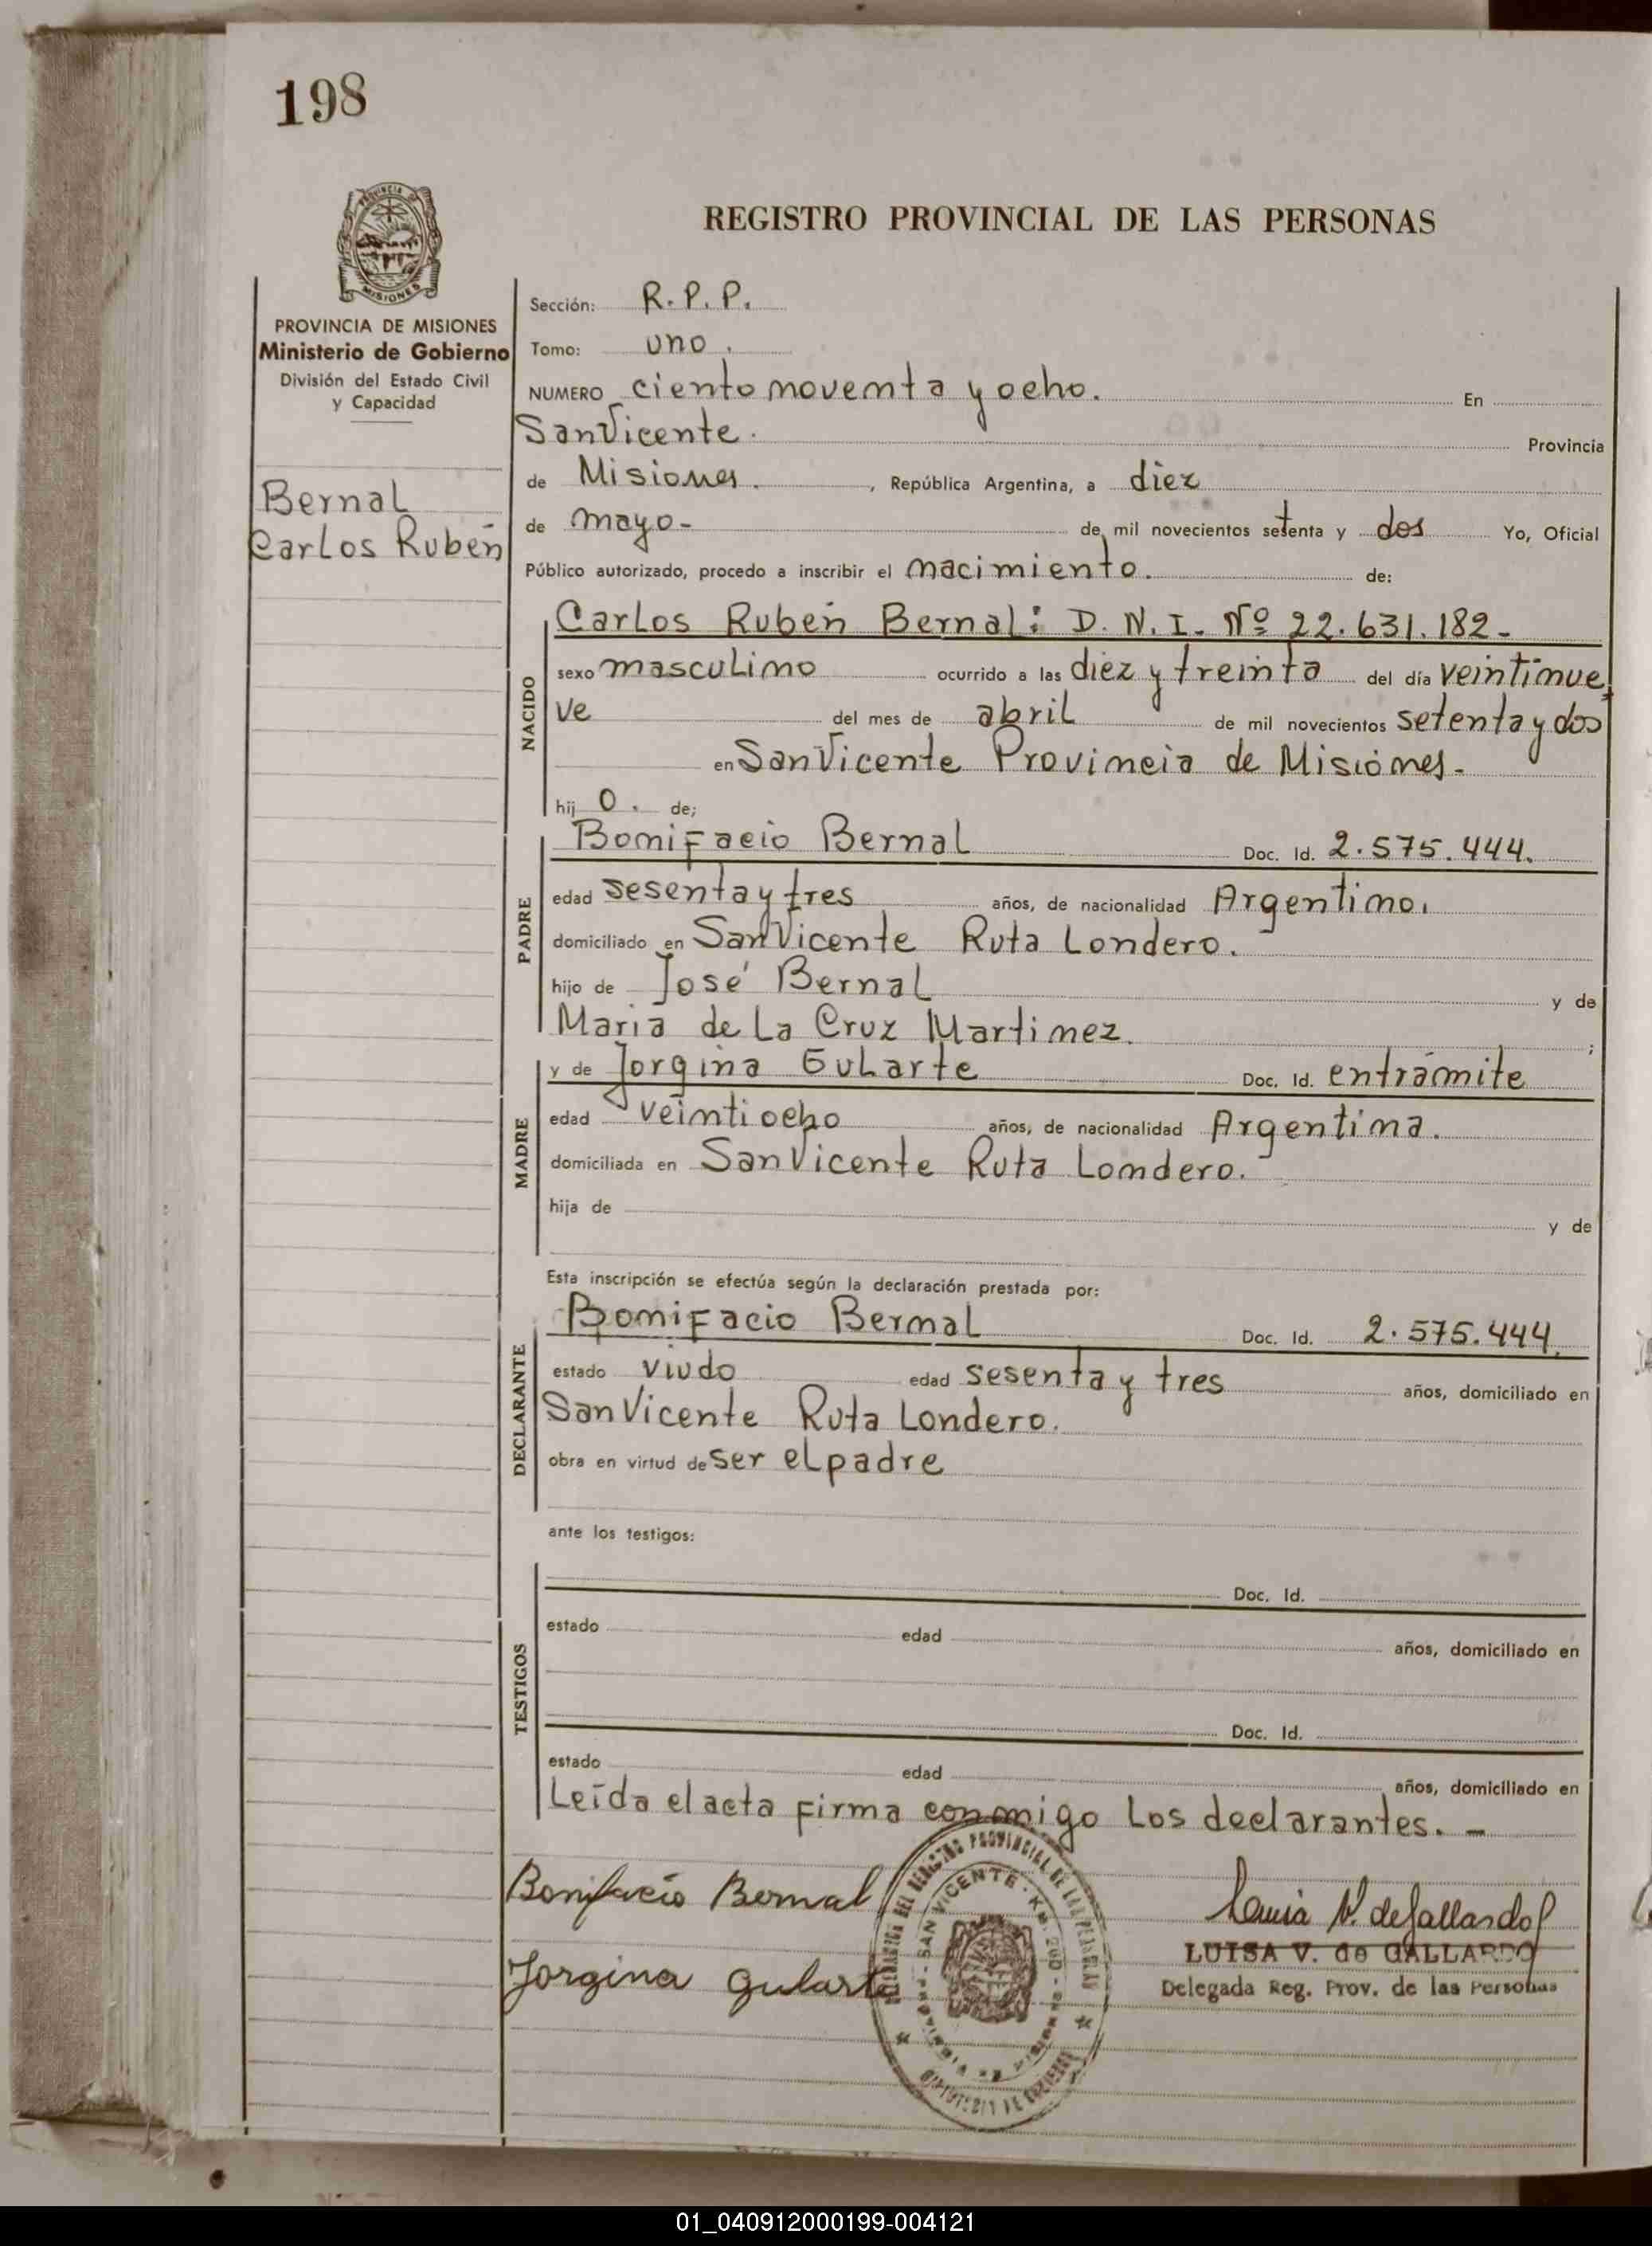 198
PROVINCIA
MISIONES
REGISTRO PROVINCIAL DE LAS PERSONAS
PROVINCIA DE MISIONES
Ministerio de Gobierno
División del Estado Civil
y Capacidad
Bernal
Carlos Rubén
Sección: R.P.P.
Tomo: uno.
NUMERO ciento noventa y ocho. En
San Vicente. Provincia
de Misiones. , República Argentina, a diez
de mayo- de mil novecientos setenta y dos Yo, Oficial
Público autorizado, procedo a inscribir el nacimiento. de:
NACIDO
Carlos Rubén Bernal: D.N.I. Nº 22.631.182-
sexo masculino ocurrido a las diez y treinta del día veintinue
ve del mes de abril de mil novecientos setenta y dos
en San Vicente Provincia de Misiones-
hij o. de;
PADRE
Bonifacio Bernal Doc. Id. 2.575.444.
edad sesenta y tres años, de nacionalidad Argentino.
domiciliado en San Vicente Ruta Londero.
hijo de José Bernal y de
Maria de La Cruz Martinez. ;
MADRE
y de Jorgina Gularte Doc. Id. entrámite
edad veintiocho años, de nacionalidad Argentina.
domiciliada en San Vicente Ruta Londero.
hija de y de
Esta inscripción se efectúa según la declaración prestada por:
DECLARANTE
Bonifacio Bernal Doc. Id. 2.575.444.
estado viudo edad sesenta y tres años, domiciliado en
San Vicente Ruta Londero.
obra en virtud de ser el padre
ante los testigos:
TESTIGOS
Doc. Id.
estado edad años, domiciliado en
Doc. Id.
estado edad años, domiciliado en
Leída el acta firma conmigo los declarantes. -
Bonifacio Bernal
Jorgina Gularte
DEL REGISTRO PROVINCIAL DE LAS PERSONAS
SAN VICENTE - KM. 200
Luisa V. de Gallardo
LUISA V. de GALLARDO
Delegada Reg. Prov. de las Personas
01_040912000199-004121